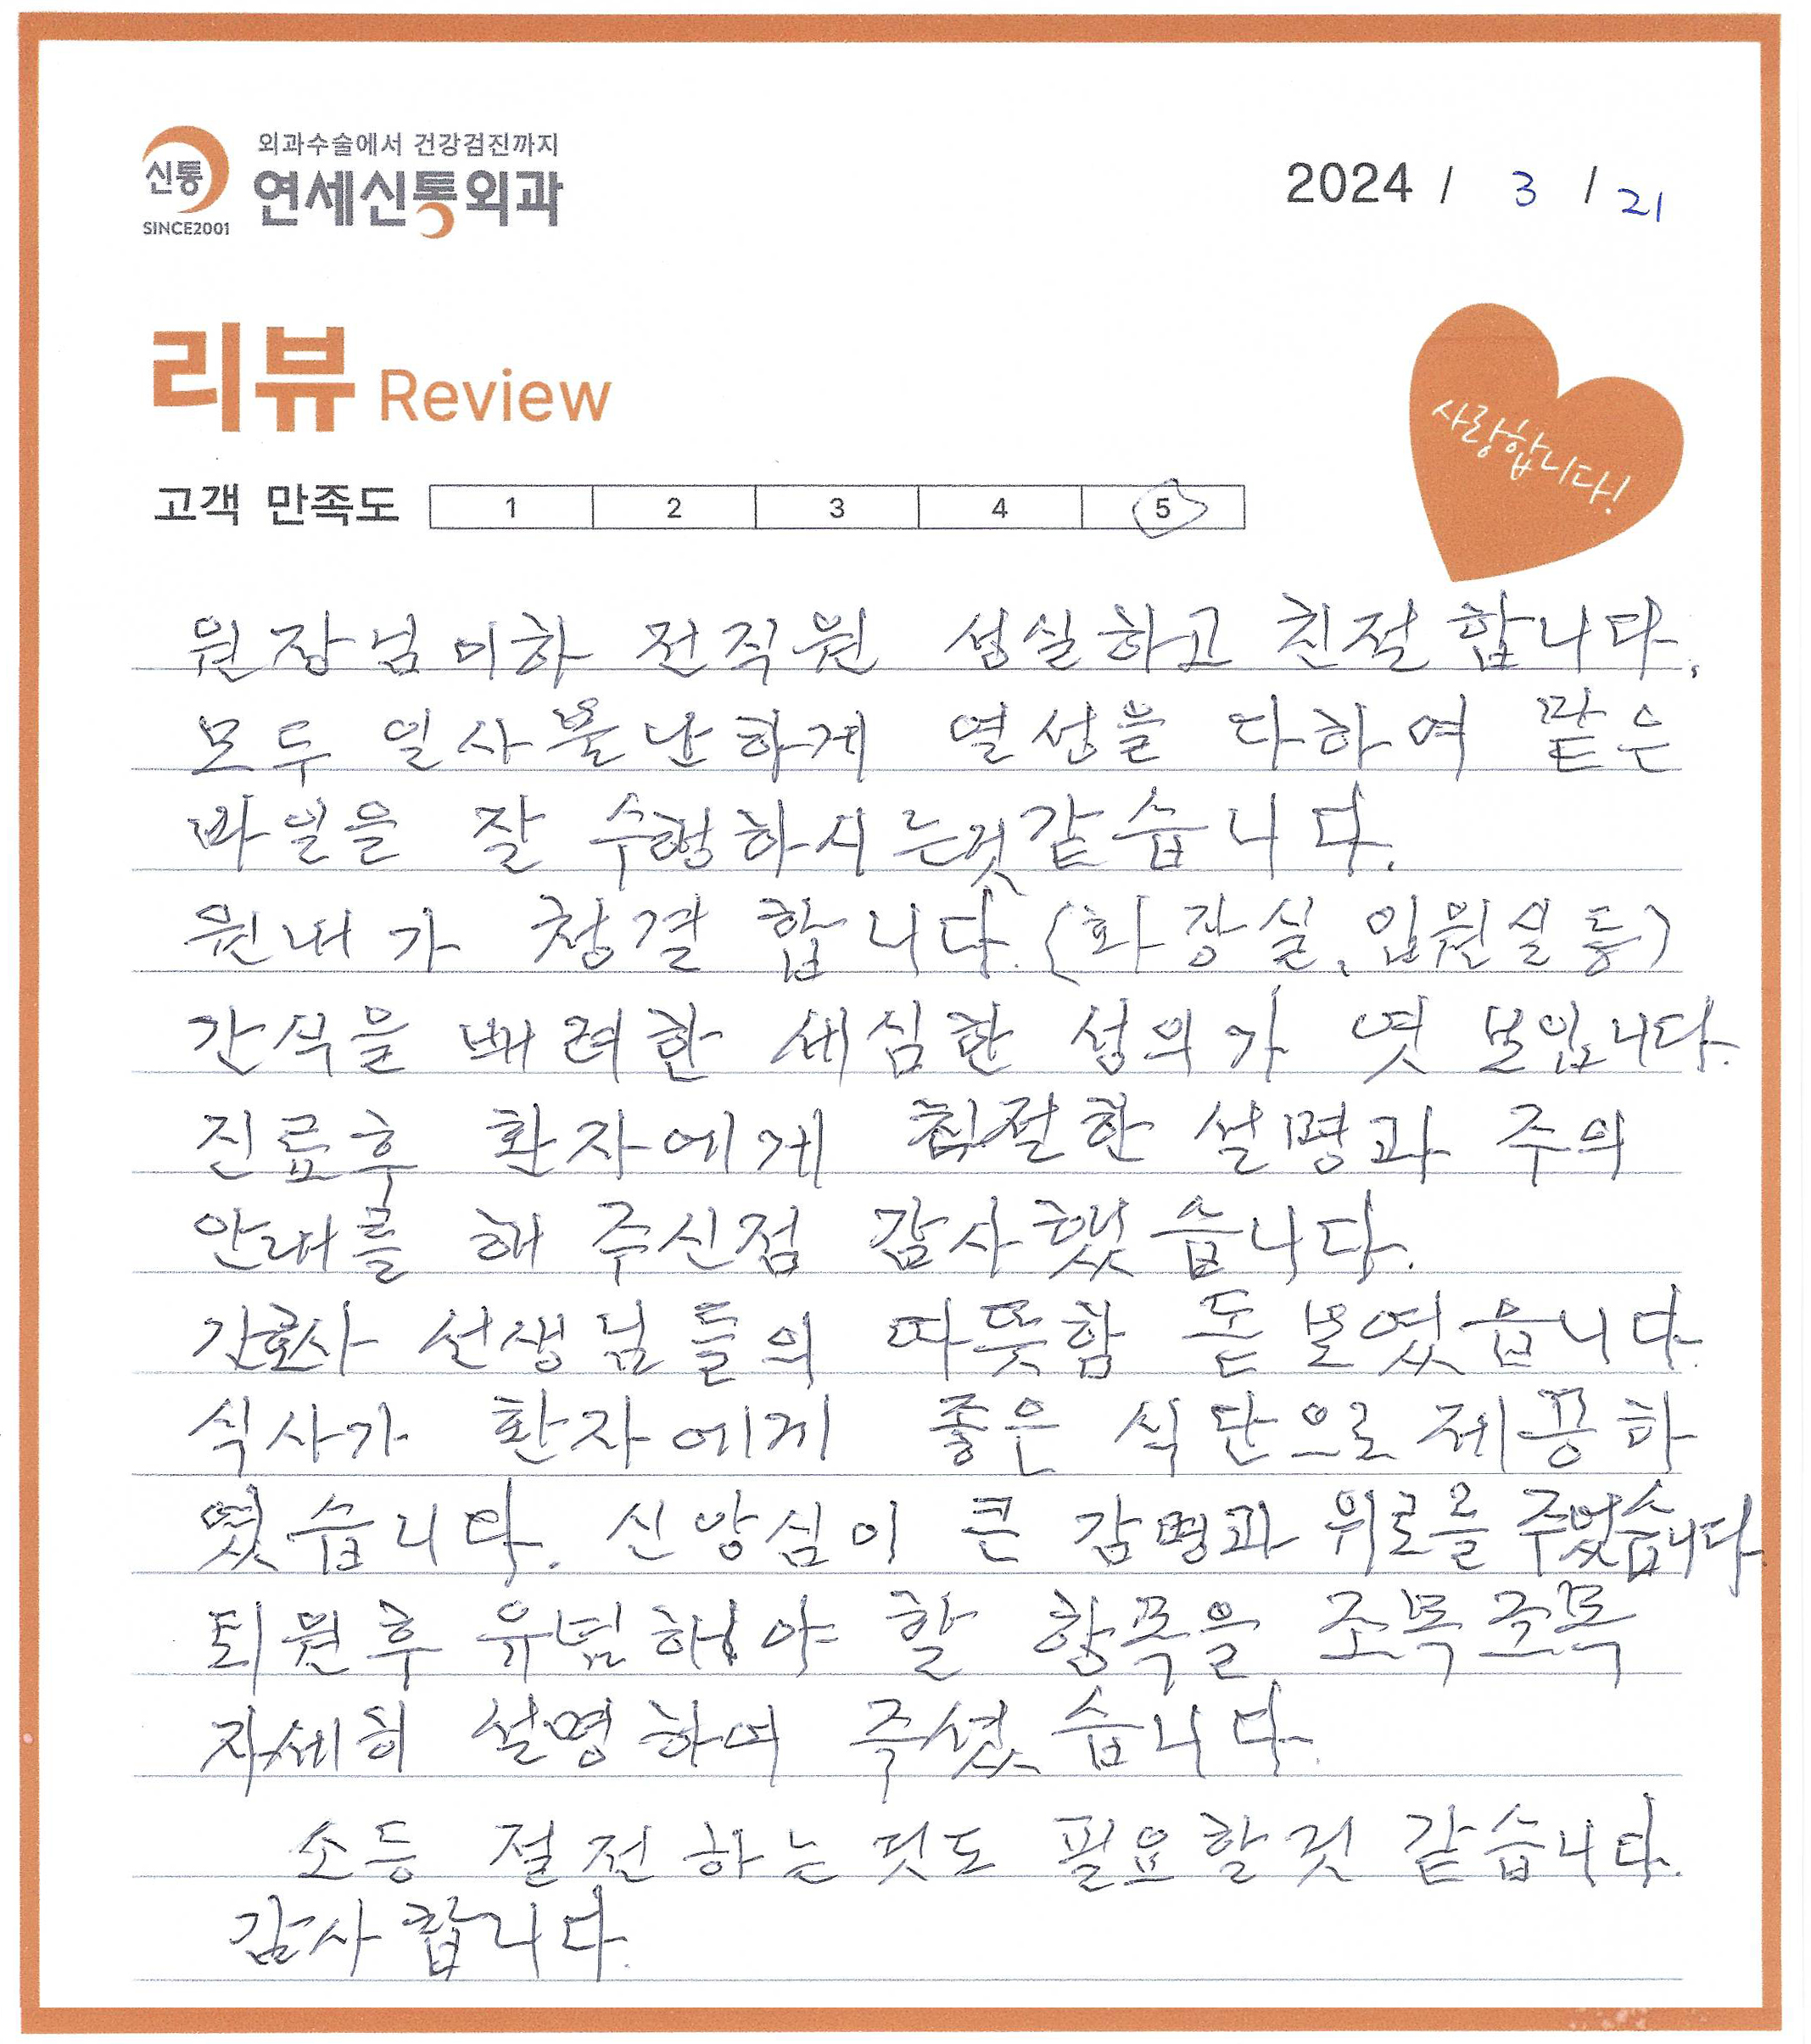 신통
SINCE2001
외과수술에서 건강검진까지
연세신통외과
2024 / 3 / 21
리뷰 Review
사랑합니다!
고객 만족도 1 2 3 4 5
원장님이하 전직원 성실하고 친절합니다.
모두 일사불난하게 열성을 다하여 맡은
바일을 잘 수행하시는것같습니다.
원내가 청결 합니다.(화장실, 입원실 등)
간식을 배려한 세심한 성의가 엿 보입니다.
진료후 환자에게 친절한 설명과 주의
안내를 해 주신점 감사했습니다.
간호사 선생님들의 따뜻함 돋보였읍니다.
식사가 환자에게 좋은 식단으로 제공하
였습니다. 신앙심이 큰 감명과 위로를 주었습니다
퇴원후 유념해야 할 항목을 조목조목
자세히 설명하여 주셨습니다.
소등 절전하는 것도 필요할것 같습니다.
감사합니다.